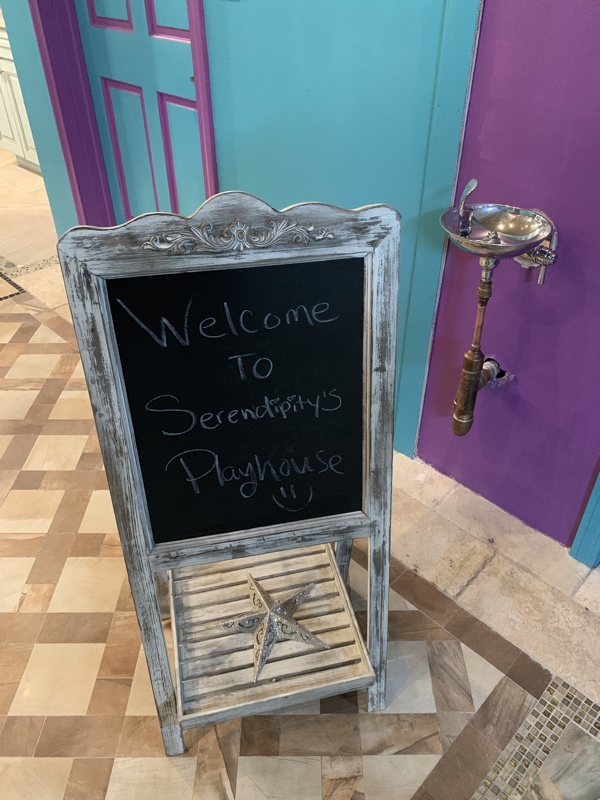 Welcome
To
Serendipity's
Playhouse